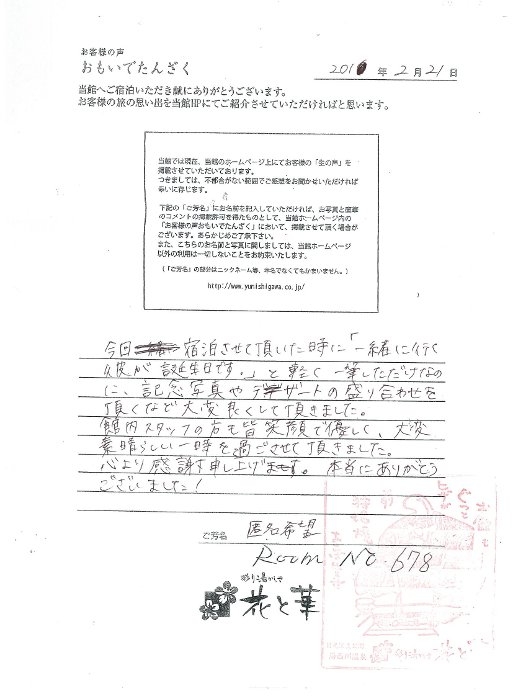 お客様の声
おもいでたんざく
2016 年 2 月 21 日
当館へご宿泊いただき誠にありがとうございます。
お客様の旅の思い出を当館HPにてご紹介させていただければと思います。
当館では現在、当館のホームページ上にてお客様の「生の声」を
掲載させていただいております。
つきましては、不都合がない範囲でご感想をお聞かせいただければ
幸いに存じます。
下記の「ご芳名」にお名前を記入していただければ、お写真と直筆
のコメントの掲載許可を得たものとして、当館ホームページ内の
『お客様の声おもいでたんざく』において、掲載させて頂く場合が
ございます。あらかじめご了承下さい。
また、こちらのお名前と写真に関しましては、当館ホームページ
以外の利用は一切しないことをお約束いたします。
(「ご芳名」の部分はニックネーム等、本名でなくてもかまいません。)
http://www.yunishigawa.co.jp/
今回 宿泊させて頂いた時に「一緒に行く
彼が誕生日です。」と軽く一筆しただけなの
に、記念写真やデザートの盛り合わせを
頂くなど大変良くして頂きました。
館内スタッフの方も皆笑顔で優しく、大変
素晴らしい一時を過ごさせて頂きました。
心より感謝申し上げます。本当にありがとう
ございました!
ご芳名 匿名希望
Room No. 678
彩り湯かしき
花と華